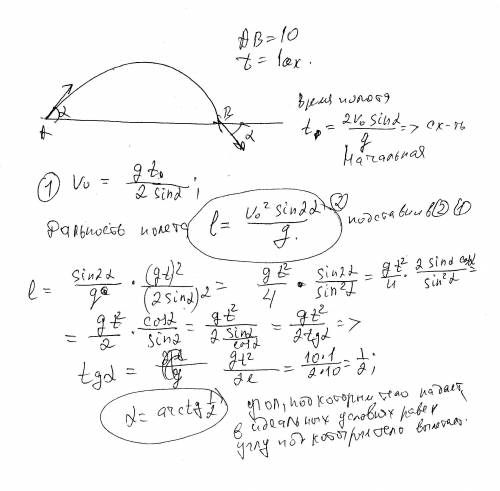 AB=10
t = 1сек.
α
A
B
α
время полета
t₀ = 2v₀ sinα / g => ск-ть
Начальная
① v₀ = g t₀ / 2 sinα ;
Дальность полета l = v₀² sin2α / g. ② подставим в ② ①
l = sin2α / g · (gt)² / (2 sinα)² = gt² / 4 · sin2α / sin²α = gt² / 4 · 2 sinα cosα / sin²α =
= gt² / 2 · cosα / sinα = gt² / 2 sinα/cosα = gt² / 2tgα =>
tgα = gt² / 2l = 10·1 / 2·10 = 1/2 ;
α = arctg 1/2
угол, под которым тело падает
в идеальных условиях равен
углу под которым тело вылетало.